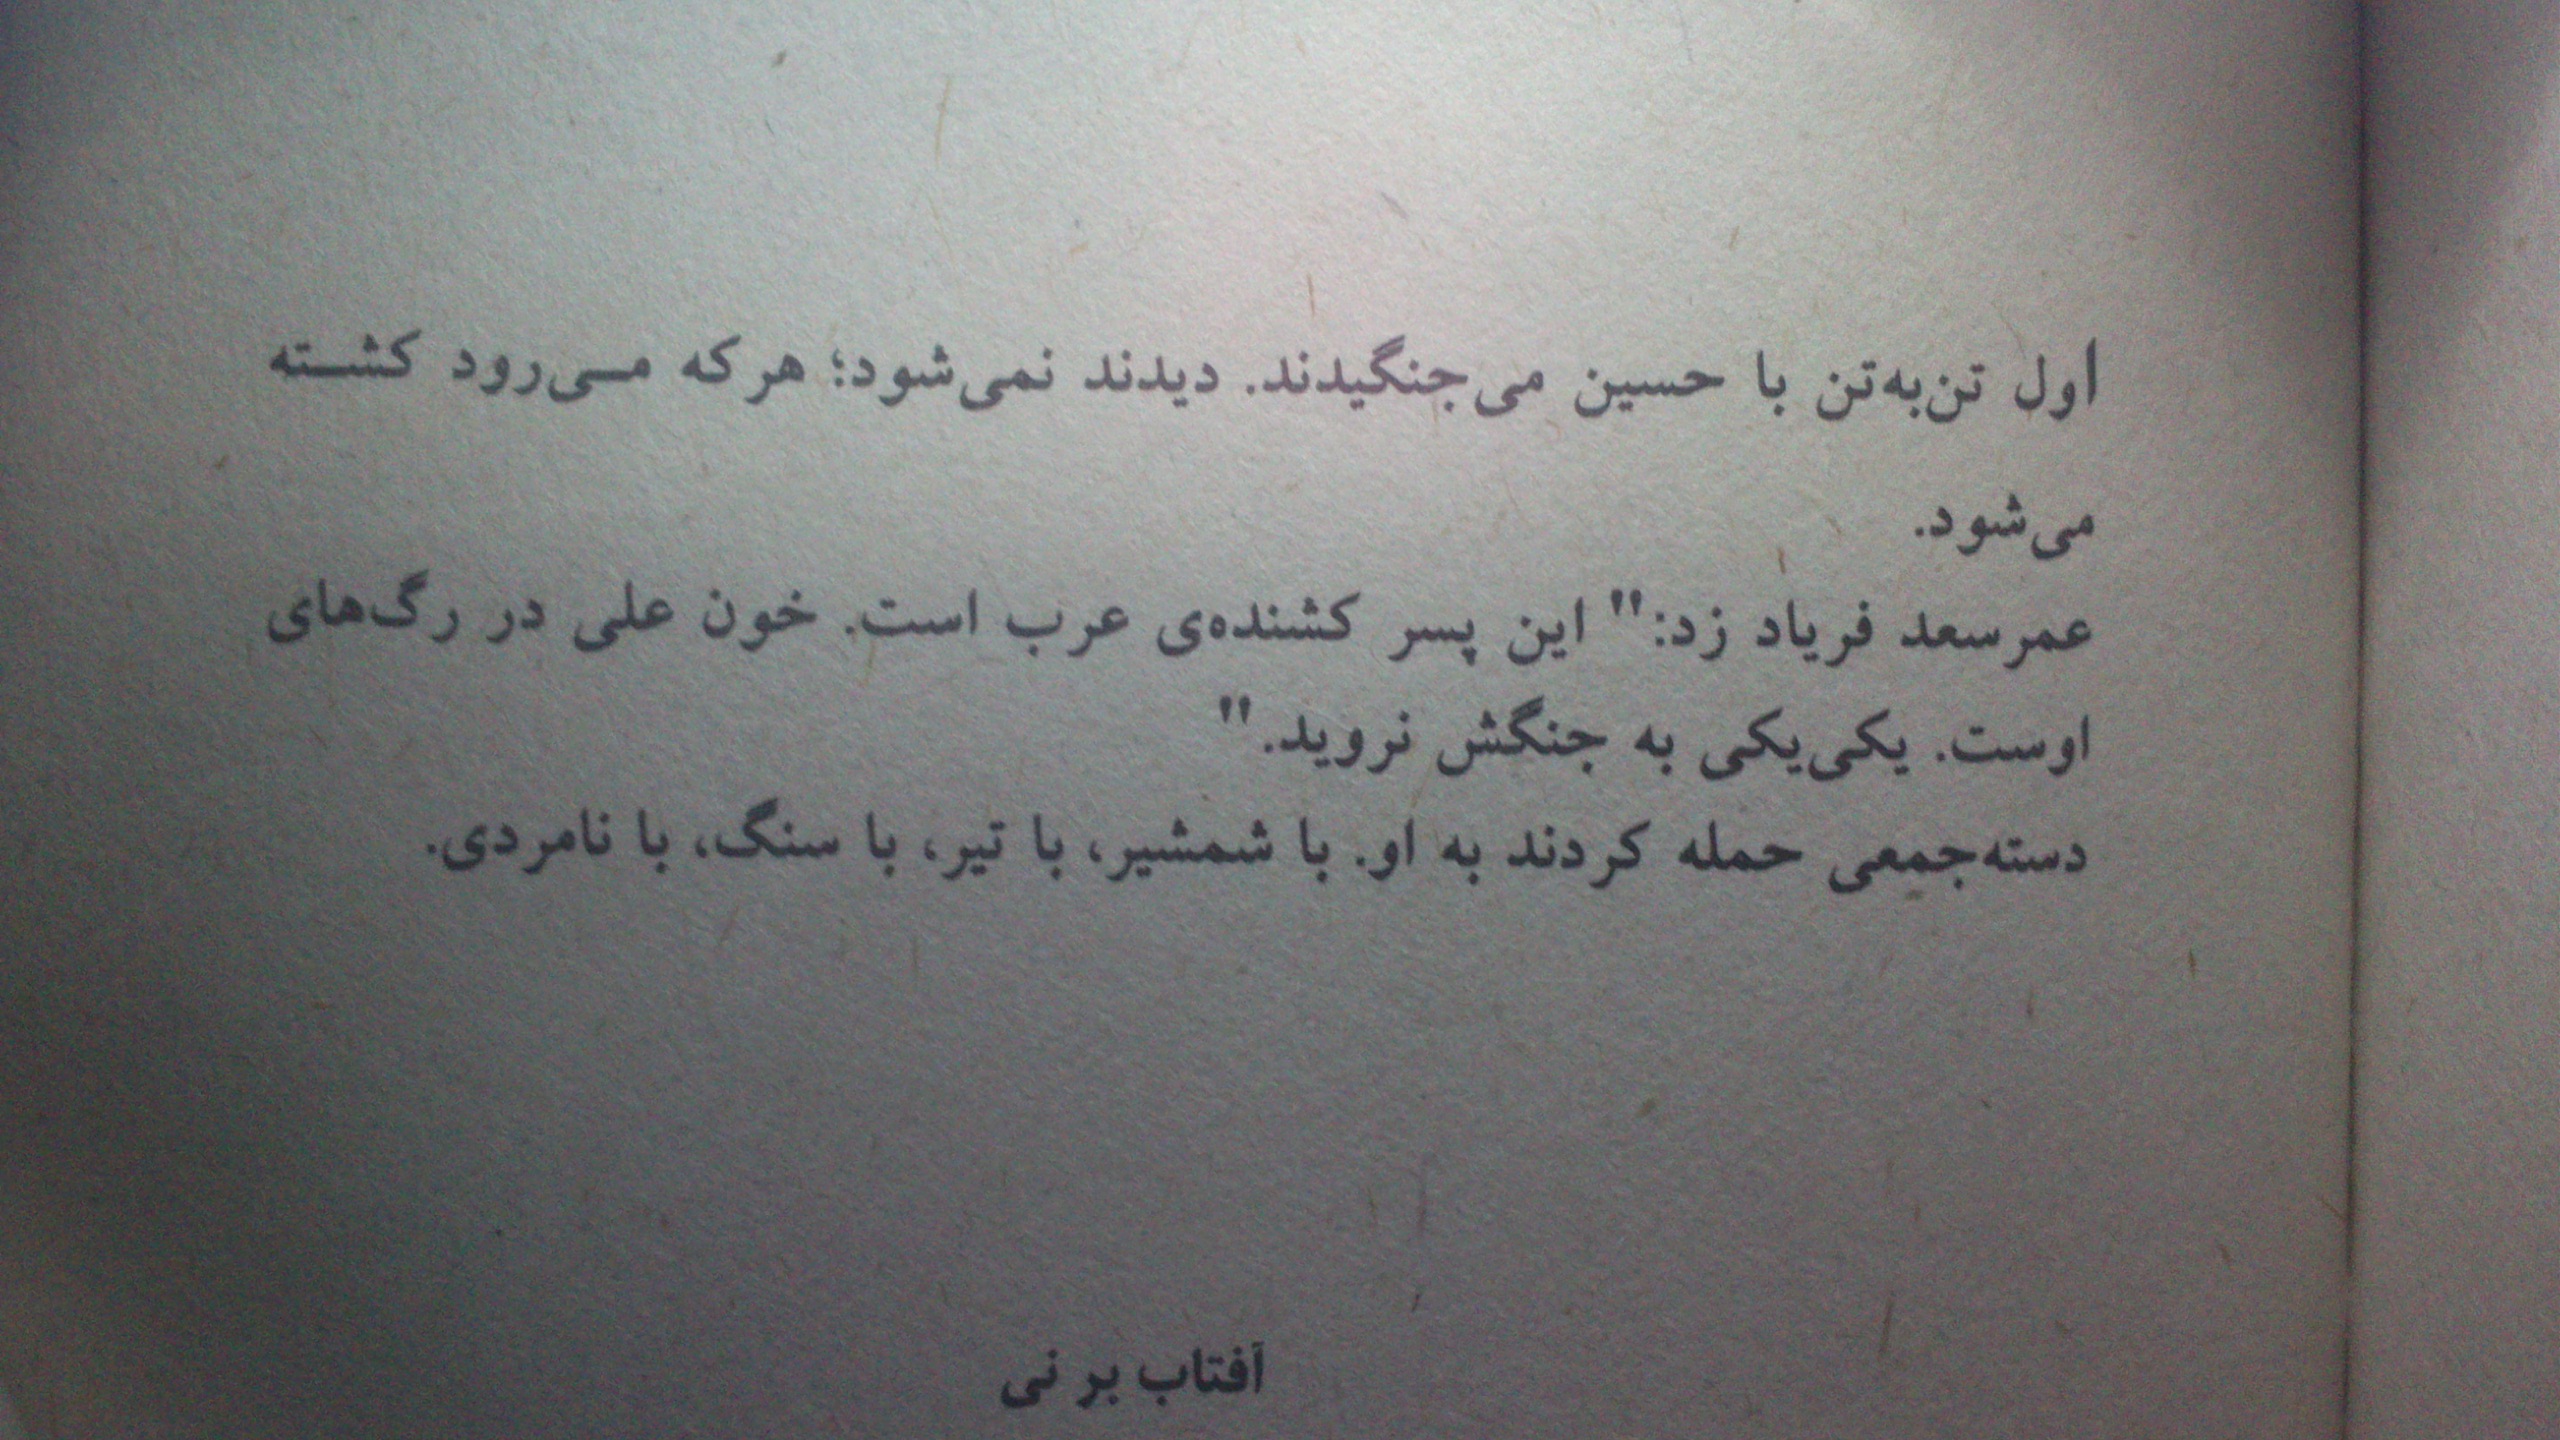 اول تن‌به‌تن با حسین می‌جنگیدند. دیدند نمی‌شود؛ هرکه می‌رود کشته
می‌شود.
عمرسعد فریاد زد:" این پسر کشنده‌ی عرب است. خون علی در رگ‌های
اوست. یکی‌یکی به جنگش نروید."
دسته‌جمعی حمله کردند به او. با شمشیر، با تیر، با سنگ، با نامردی.
آفتاب بر نی